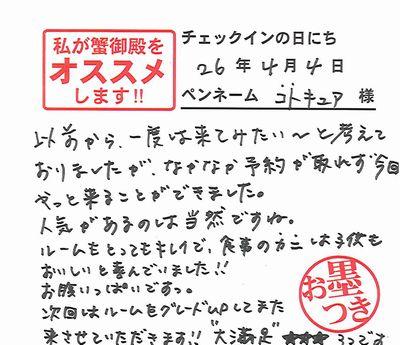 私が蟹御殿を
オススメ
します!!
チェックインの日にち
26年4月4日
ペンネーム ゴトキュア 様
以前から、一度は来てみたい〜と考えて
おりましたが、なかなか予約が取れず今回
やっと来ることができました。
人気があるのは当然ですね。
ルームもとってもキレイで、食事の方には子供も
おいしいと喜んでいました!!
お腹いっぱいですっ。
次回はルームをグレードUPしてまた
来させていただきます!! "大満足" ★★★ 3つです
お墨つき